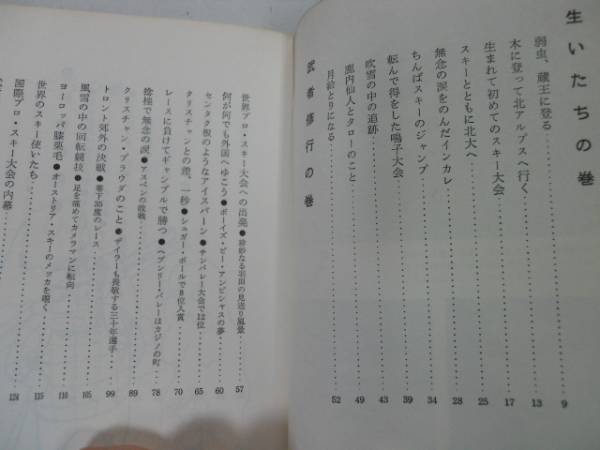 生いたちの巻
弱虫、蔵王に登る 9
木に登って北アルプスへ行く 13
生まれて初めてのスキー大会 17
スキーとともに北大へ 25
無念の涙をのんだインカレ 28
ちんばスキーのジャンプ 34
転んで得をした鳴子大会 39
吹雪の中の追跡 43
庭内仙人とタローのこと 49
月給とりになる 52
武者修行の巻
世界プロ・スキー大会への出発●珍妙なる羽田の見送り風景 57
何が何でも外国へゆこう●ボーイズ・ビー・アンビシャスの夢 60
センタク板のようなアイスバーン●サンバレー大会で12位 65
クリスチャンとの差、一秒●シュガー・ボールで8位入賞 70
レースに負けてギャンブルで勝つ●ヘブンリー・バレーはカジノの町 78
捻挫で無念の涙●アスペンの敗戦 82
クリスチャン・プラウダのこと●デイラーも長敬する三十年選手 89
トロント郊外の決戦●零下35度のレース 99
風雪の中の回転競技●足を痛めてカメラマンに転向 105
ヨーロッパ膝栗毛●オーストリア・スキーのメッカを覗く 110
世界のスキー使いたち 115
国際プロ・スキー大会の内幕 124